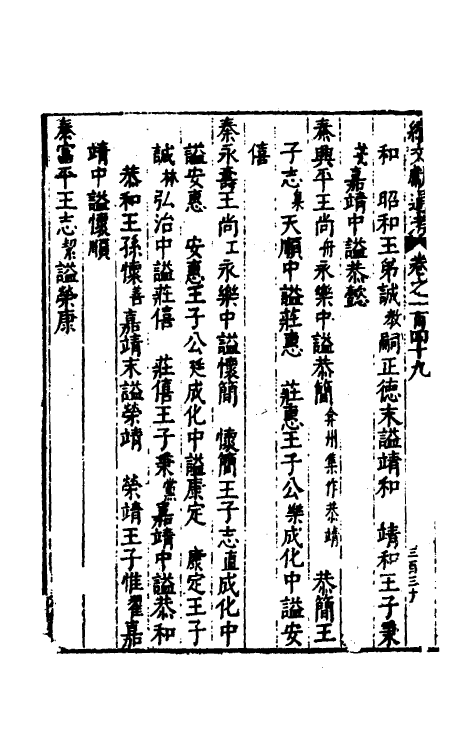 續文獻通考 卷之一百四十九
和 昭和王弟誠敕嗣正德末謚靖和 靖和王子秉
嘉靖中謚恭懿
秦興平王尚冊永樂中謚恭簡弇州集作恭靖 恭簡王
子志集天順中謚莊惠 莊惠王子公樂成化中謚安
僖
秦永壽王尚永樂中謚懷簡 懷簡王子志直成化中
謚安惠 安惠王子公成化中謚康定 康定王子
誠林弘治中謚莊僖 莊僖王子秉嘉靖中謚恭和
恭和王孫懷善嘉靖末謚榮靖 榮靖王子惟燿嘉
靖中謚懷順
秦富平王志㓗謚榮康